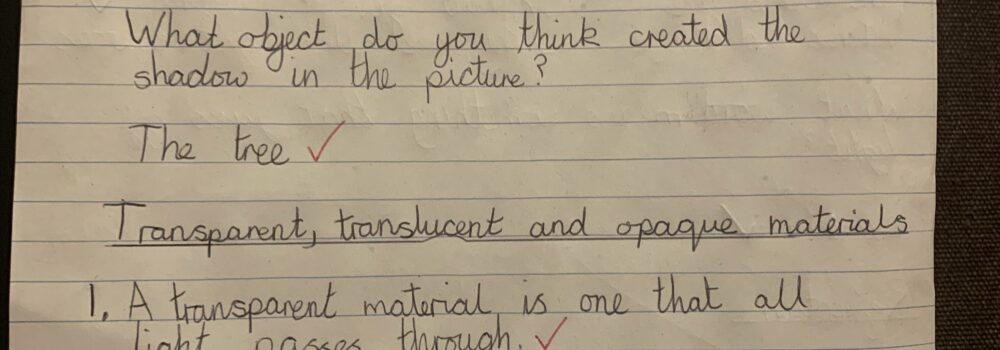 What object do you think created the
shadow in the picture?
The tree ✓
Transparent, translucent and opaque materials
1. A transparent material is one that all
light passes through. ✓